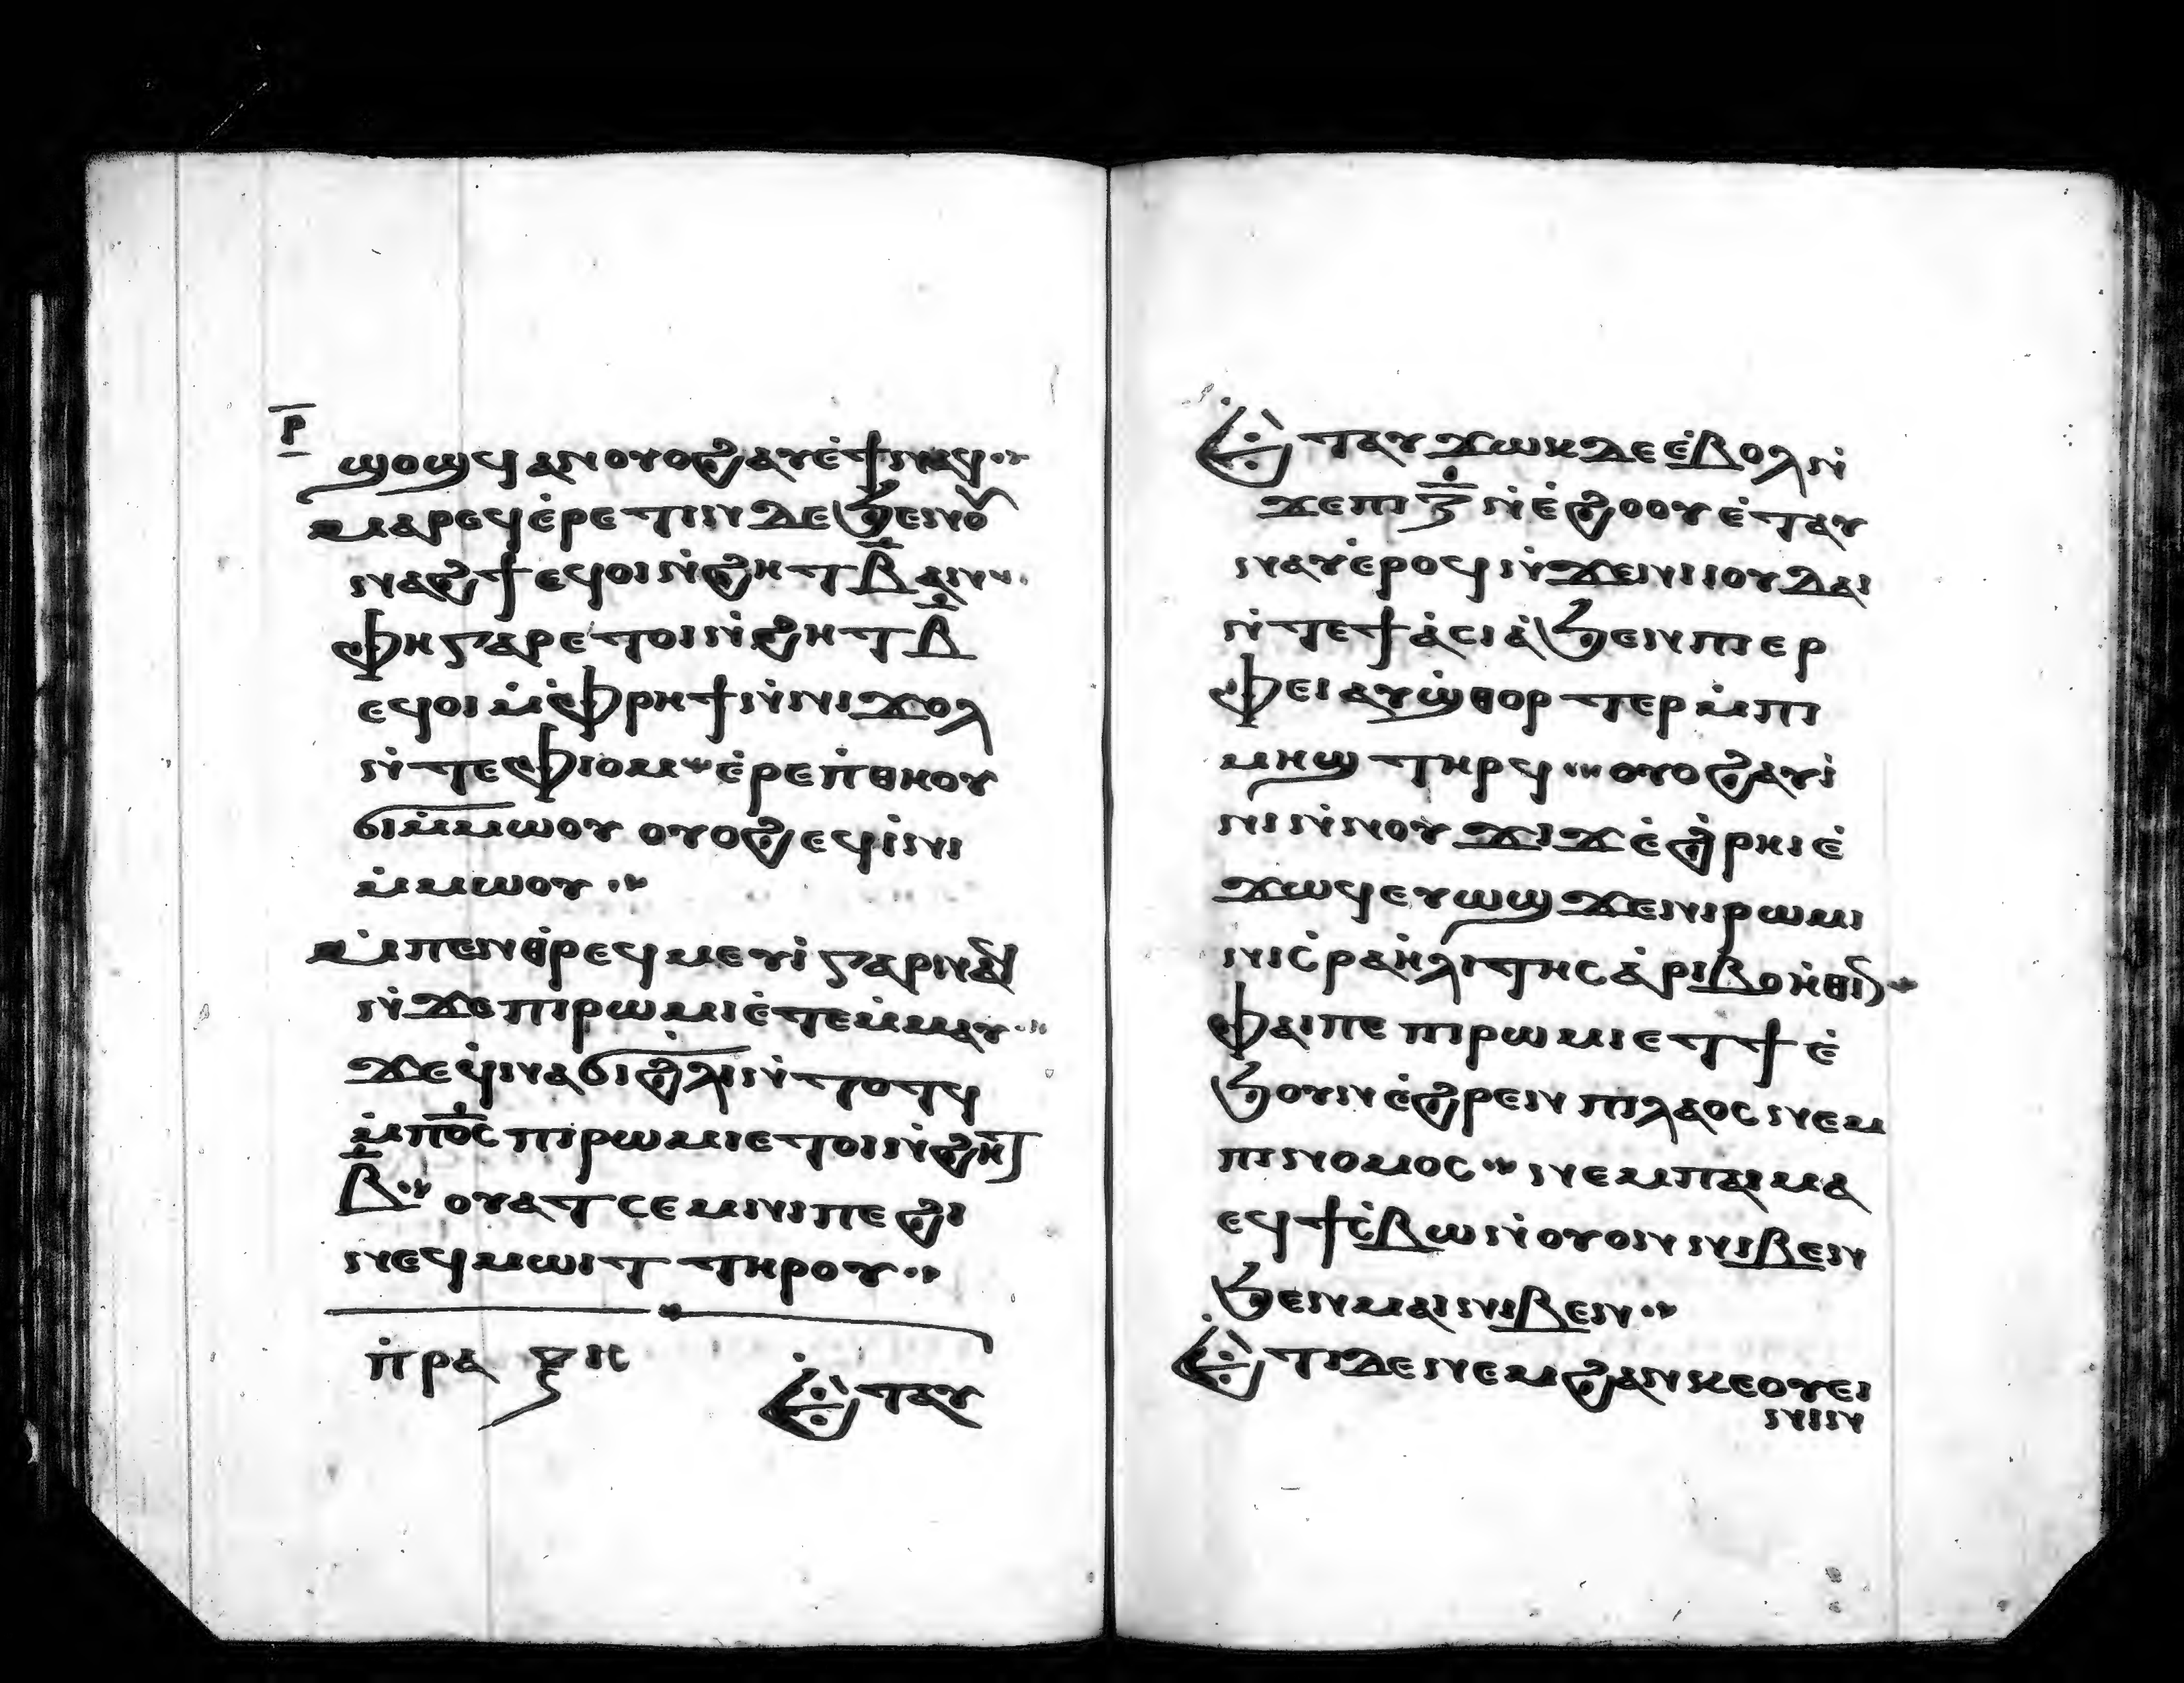 ⲣ̅
ϣⲟϣϥ ⲁⲛ ⲟⲩⲟϩ ⲁⲩⲉ̇ϯ ⲛⲁϥ
ⲙⲁⲣⲉϥⲉ̇ⲣⲉⲧⲓⲛ ⲇⲉ ϧⲉⲛ ⲟⲩ
ⲛⲁϩϯ ⲉϥⲟⲓ ⲛ̇ϩⲏⲧ ⲃ̅ ⲁⲛ
ⲫⲏ ⲅⲁⲣ ⲉⲧⲟⲓ ⲛ̇ϩⲏⲧ ⲃ̅
ⲉϥⲟⲓ ⲙ̇ⲫ̇ⲣⲏϯ ⲛ̇ⲛⲓϫⲟⲗ
ⲛ̇ⲧⲉ ⲫⲓⲟⲙ ⲉ̇ⲣⲉ ⲡ̇ⲑⲏⲟⲩ
ϭⲓ ⲙ̇ⲙⲱⲟⲩ ⲟⲩⲟϩ ⲉϥⲓ̇ⲛⲓ
ⲙ̇ⲙⲱⲟⲩ
ⲙ̇ⲡⲉⲛⲑ̇ⲣⲉϥⲙⲉⲩⲓ̇ ⲅⲁⲣ ⲓⲛⲁⲓ
ⲛ̇ϫⲉ ⲡⲓⲣⲱⲙⲓ ⲉ̇ⲧⲉⲙ̇ⲙⲁⲩ
ϫⲉ ϥ̇ⲛⲁϭⲓ ϩ̇ⲗⲓ ⲛ̇ⲧⲟⲧϥ
ⲙ̇ⲡⲟ̅ⲥ̅ ⲡⲓⲣⲱⲙⲓ ⲉⲧⲟⲓ ⲛ̇ϩⲏⲧ
ⲃ̅ ⲟⲩⲁⲧⲥⲉⲙⲛⲓ ⲡⲉ ϩⲓ
ⲛⲉϥⲙⲱⲓⲧ ⲧⲏⲣⲟⲩ
ⲡ̇ⲣⲁⲝⲓⲥ
Ⲉ̇ⲧⲁⲩ
Ⲉ̇ⲧⲁⲩϫⲱⲕ ⲇⲉ ⲉ̇ⲃⲟⲗ ⲛ̇
ϫⲉ ⲡⲓ ⲍ̅ ⲛ̇ⲉ̇ϩⲟⲟⲩ ⲉ̇ⲧⲁⲩ
ⲛⲁⲩ ⲉ̇ⲣⲟϥ ⲛ̇ϫⲉ ⲛⲓⲓⲟⲩⲇⲁⲓ
ⲛ̇ⲧⲉ ϯⲁ̇ⲥⲓⲁ̇ ϧⲉⲛ ⲡⲓⲉⲣ
ⲫⲉⲓ ⲁⲩϣ̇ⲑⲟⲣⲧⲉⲣ ⲙ̇ⲡⲓ
ⲙⲏϣ ⲧⲏⲣϥ ⲟⲩⲟϩ ⲁⲩⲓ̇
ⲛⲓ ⲛ̇ⲛⲟⲩϫⲓϫ ⲉ̇ϩ̇ⲣⲏⲓ ⲉ̇
ϫⲱϥ ⲉⲩⲱϣ ϫⲉ ⲛⲓⲣⲱⲙⲓ
ⲛⲓⲥ̇ⲣⲁⲏ̇ⲗⲓⲧⲏⲥ ⲁ̇ⲣⲓⲃⲟⲏ̇ⲑⲓⲛ
ⲫⲁⲓ ⲡⲉ ⲡⲓⲣⲱⲙⲓ ⲉⲧϯ ⲉ̇
ϧⲟⲩⲛ ⲉ̇ϩ̇ⲣⲉⲛ ⲡⲓⲗⲁⲟⲥ ⲛⲉⲙ
ⲡⲓⲛⲟⲙⲟⲥ ⲛⲉⲙ ⲡⲁⲓⲙⲁ
ⲉϥϯⲥ̇ⲃⲱ ⲛ̇ⲟⲩⲟⲛ ⲛⲓⲃⲉⲛ
ϧⲉⲛ ⲙⲁⲓ ⲛⲓⲃⲉⲛ
Ⲉ̇ⲧⲓ ⲇⲉ ⲛⲉⲙ ϩⲁⲛⲕⲉⲟⲩⲉⲓ
ⲛⲓⲛ